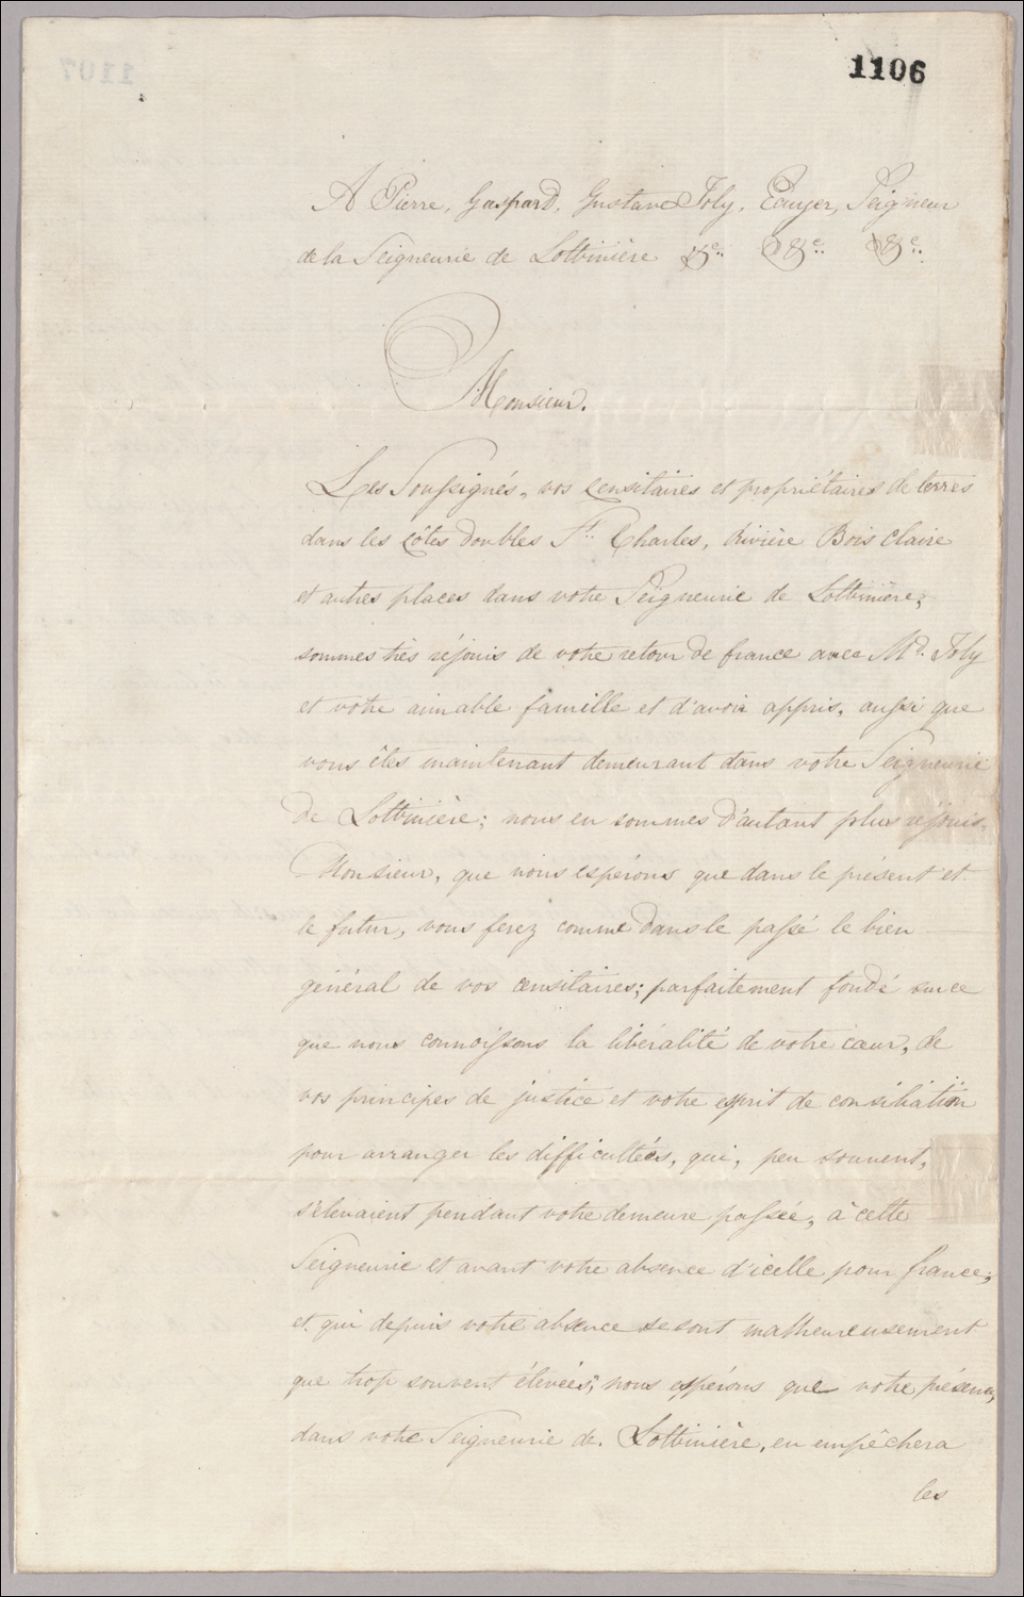 1106
A Pierre, Gaspard, Gustave Joly, Ecuyer, Seigneur
de la Seigneurie de Lotbinière &c. &c. &c.
Monsieur.
Les Soussignés, vos Censitaires et propriétaires de terres
dans les côtes doubles St. Charles, Rivière Bois claire
et autres places dans votre Seigneurie de Lotbinière,
sommes très réjouis de votre retour de france avec Md. Joly
et votre aimable famille et d'avoir appris, aussi que
vous êtes maintenant demeurant dans votre Seigneurie
de Lotbinière; nous en sommes d'autant plus réjouis,
Monsieur, que nous espérons que dans le présent et
le futur, vous ferez comme dans le passé le bien
général de vos censitaires; parfaitement fondé sur ce
que nous connoissons la libéralité de votre cœur, de
vos principes de justice et votre esprit de consiliation
pour arranger les difficultées, qui, peu souvent,
s'élevaient pendant votre demeure passée, à cette
Seigneurie et avant votre absence d'icelle pour france;
et qui depuis votre absence se sont malheureusement
que trop souvent élevées; nous espérons que votre présence,
dans votre Seigneurie de Lotbinière, en empêchera
les
1107